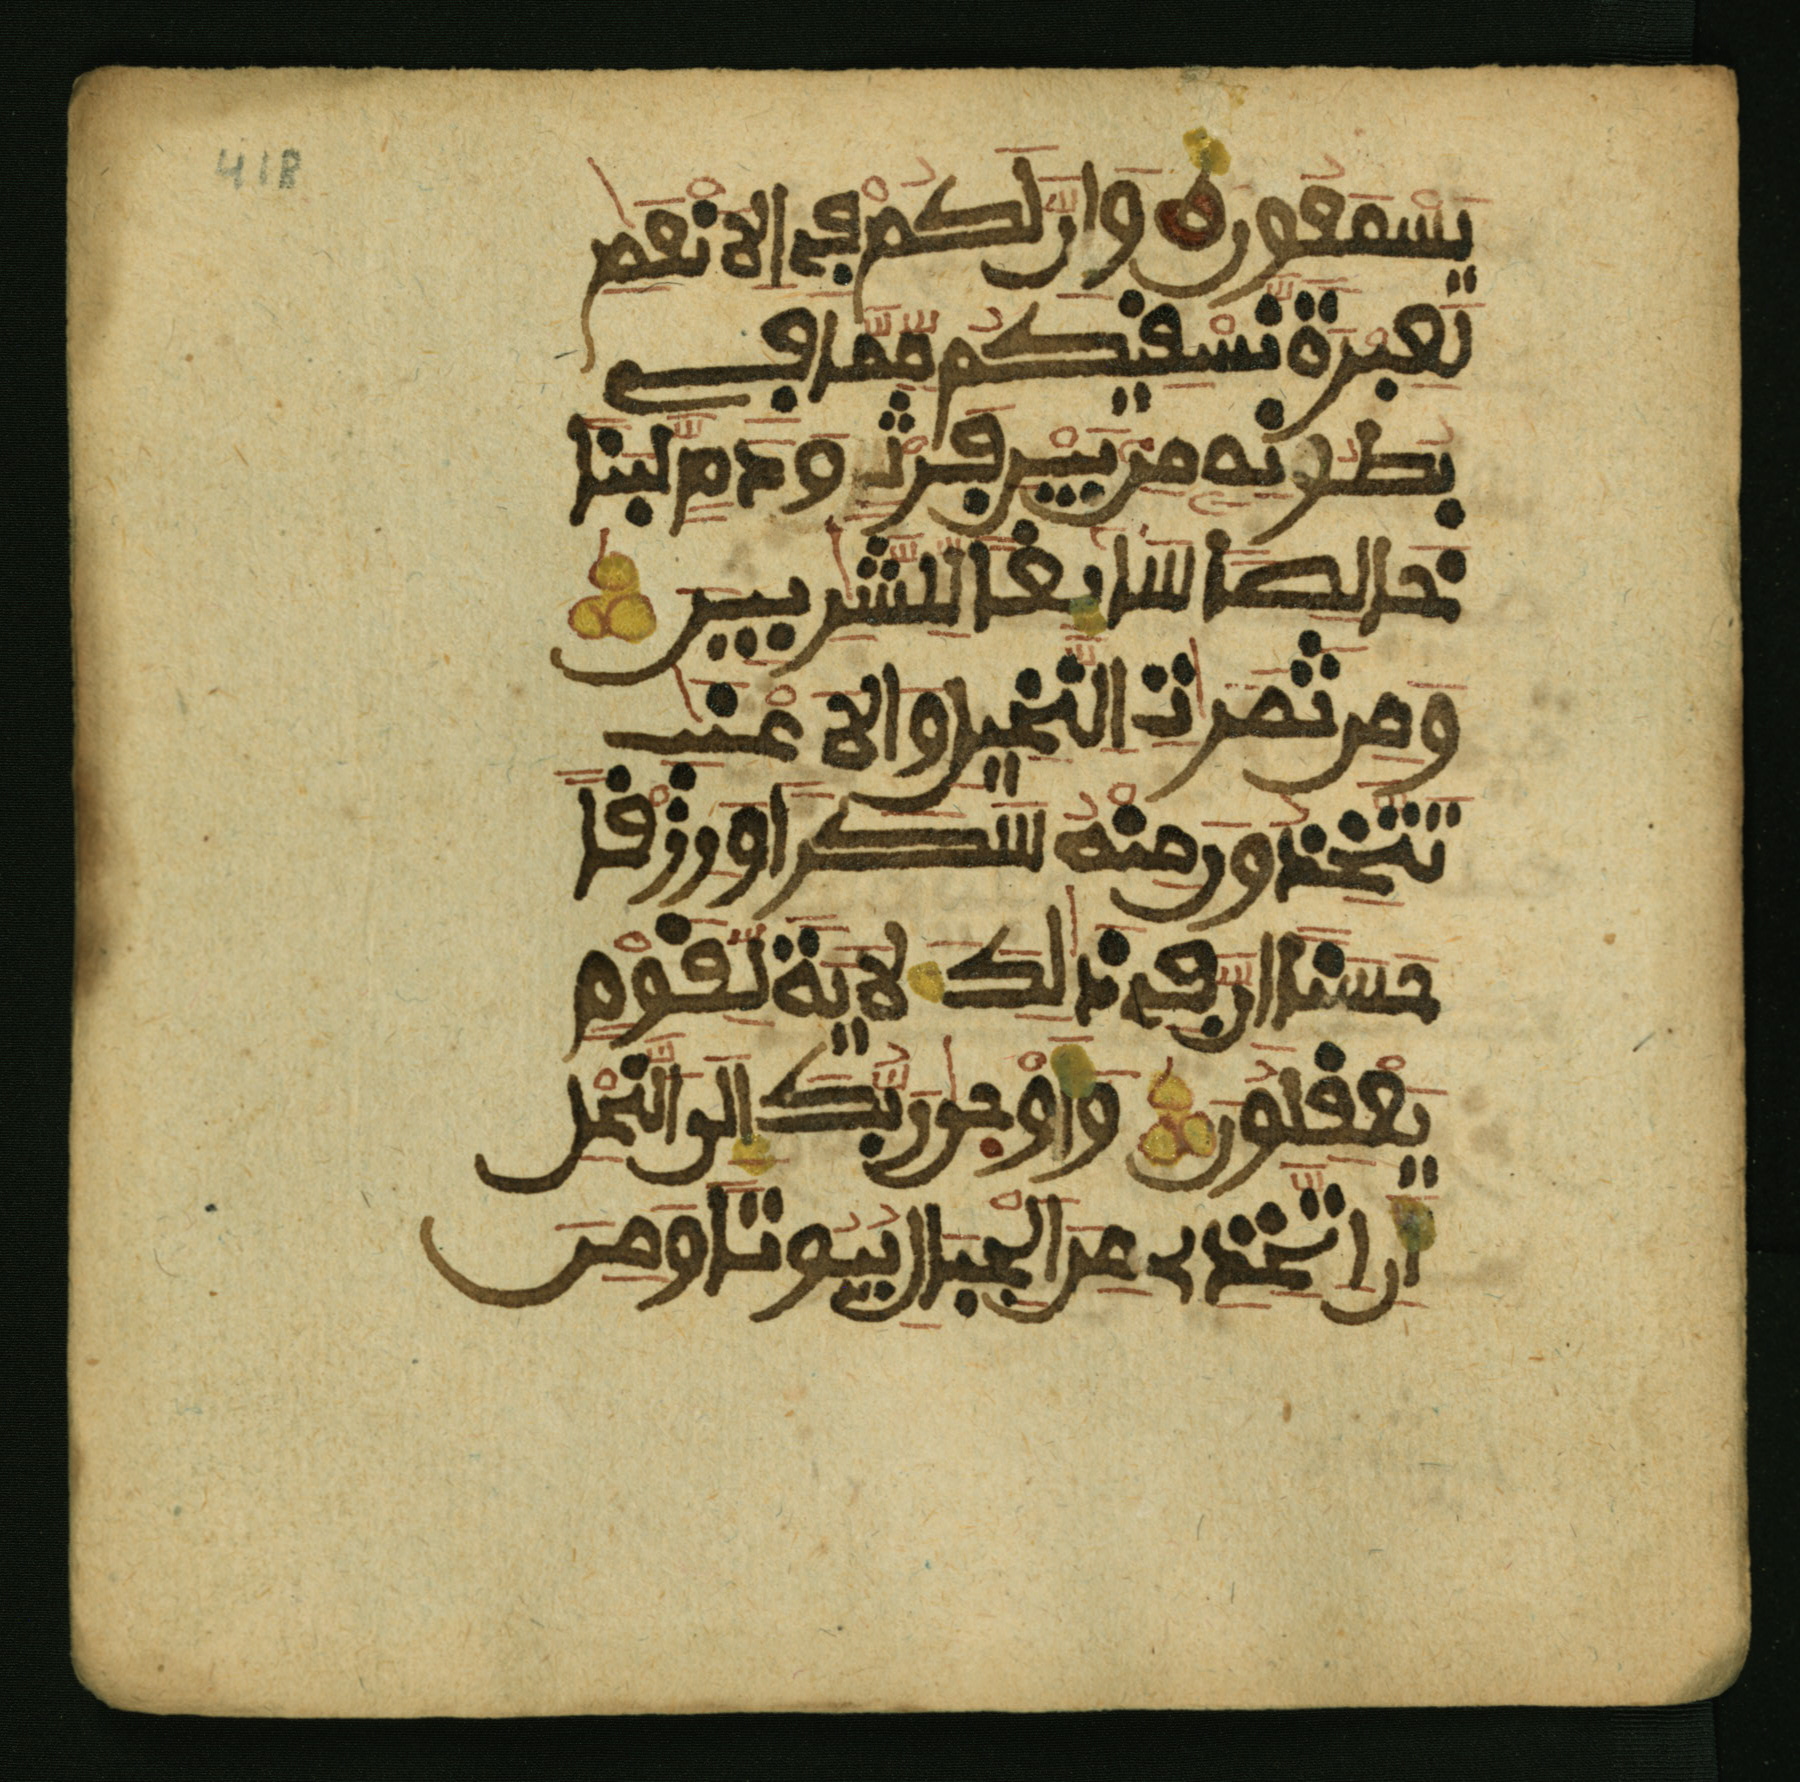 418
يَسْمَعُونَ وَإِنَّ لَكُمْ فِي الْأَنْعَٰمِ
لَعِبْرَةً نُّسْقِيكُم مِّمَّا فِي
بُطُونِهِ مِنْ بَيْنِ فَرْثٍ وَدَمٍ لَّبَنًا
خَالِصًا سَائِغًا لِّلشَّٰرِبِينَ
وَمِن ثَمَرَٰتِ النَّخِيلِ وَالْأَعْنَٰبِ
تَتَّخِذُونَ مِنْهُ سَكَرًا وَرِزْقًا
حَسَنًا إِنَّ فِي ذَٰلِكَ لَأيَةً لِّقَوْمٍ
يَعْقِلُونَ وَأَوْحَىٰ رَبُّكَ إِلَى النَّحْلِ
أَنِ اتَّخِذِي مِنَ الْجِبَالِ بُيُوتًا وَمِنَ